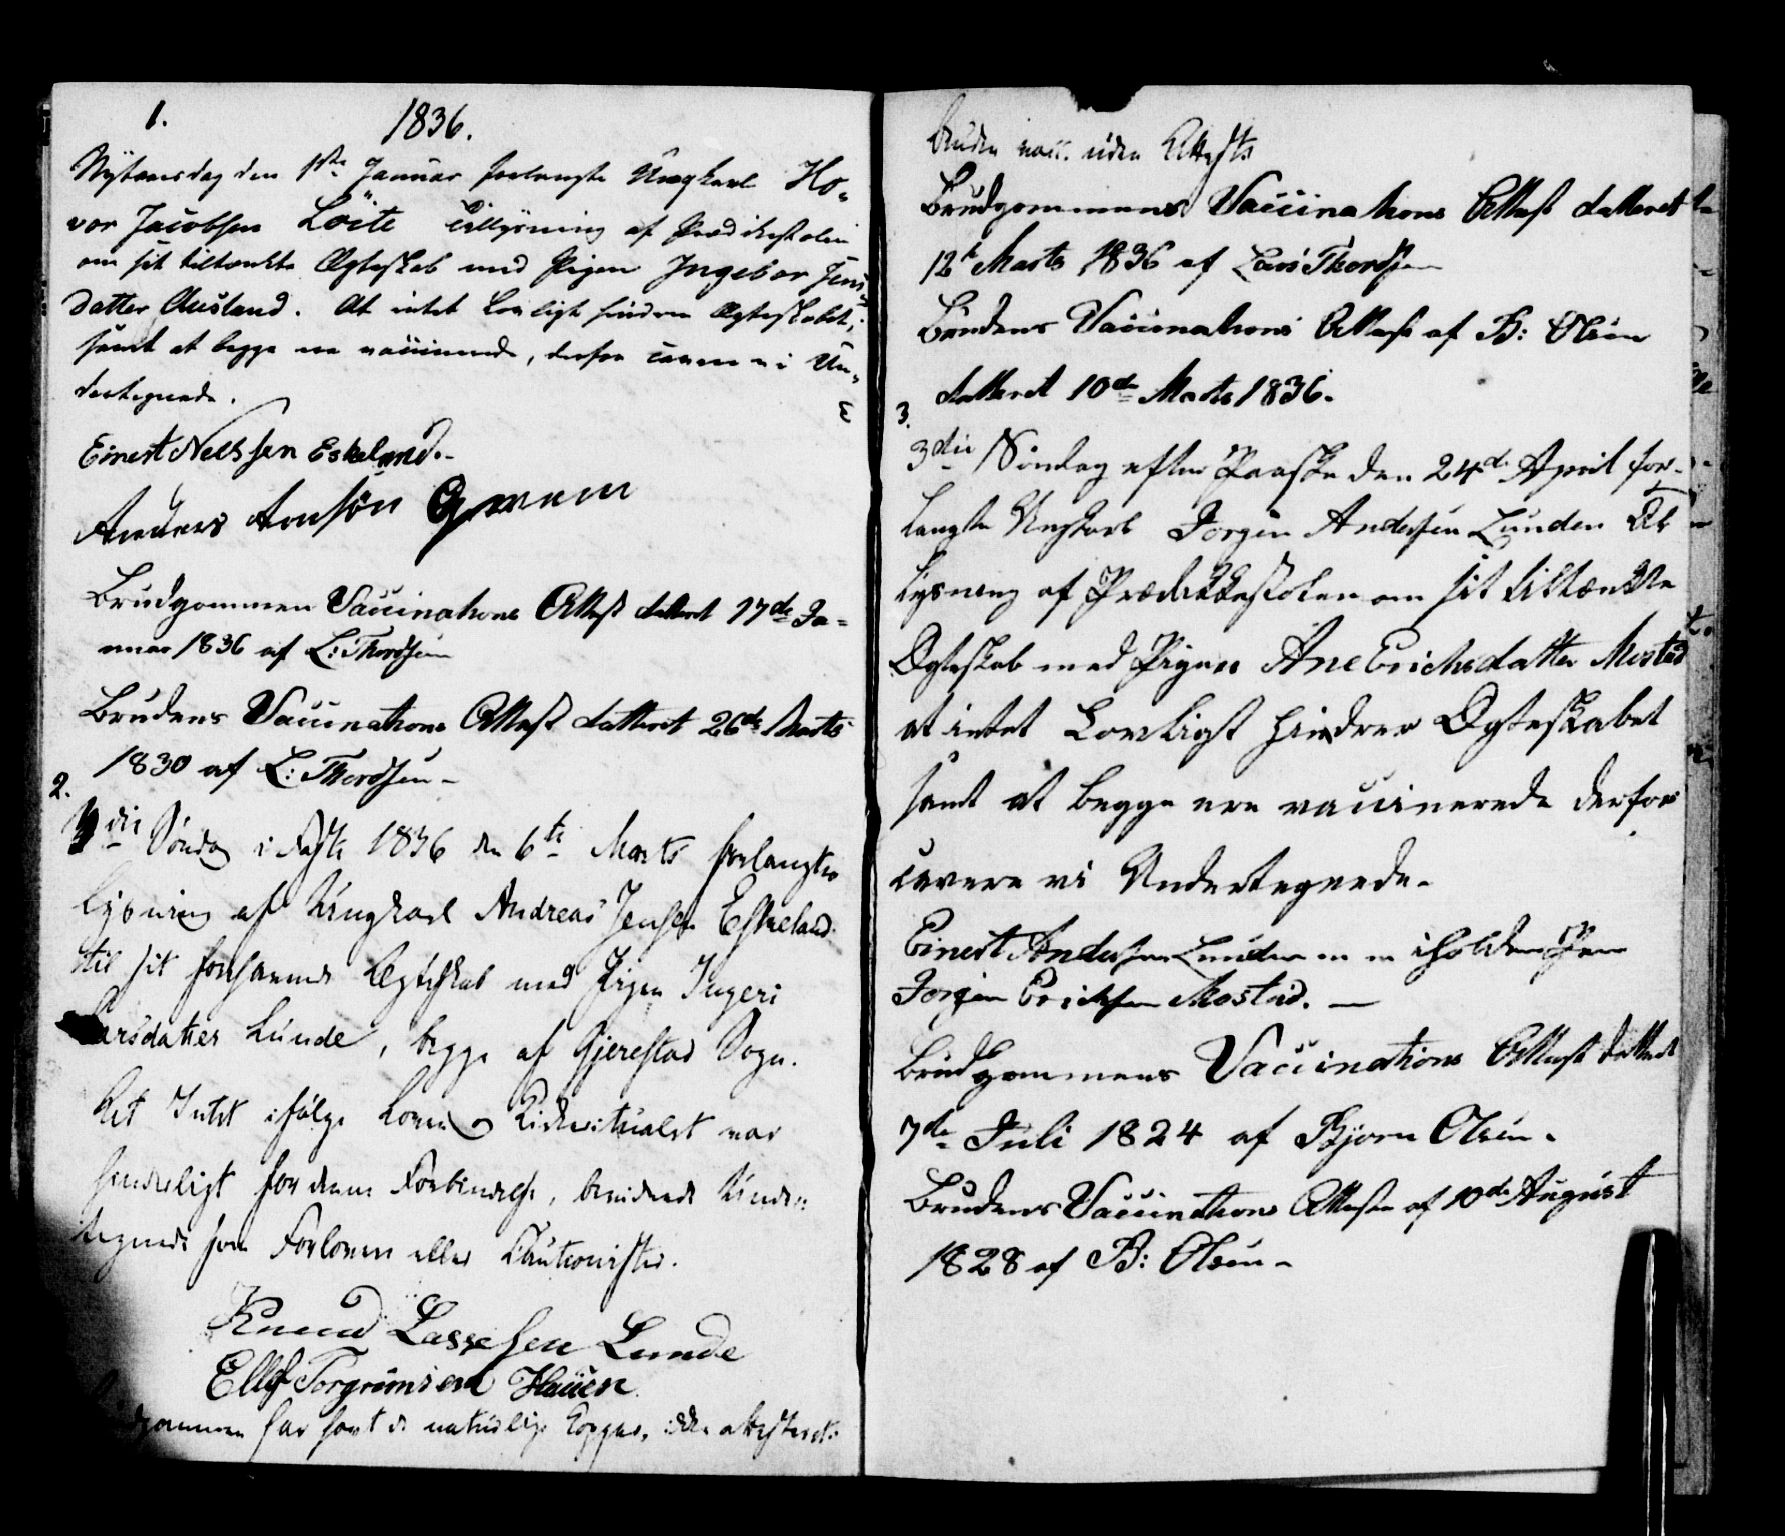 1.
1836.
Nytaarsdag den 1ste Januar forlangte Ungkarl Ho-
vor Jacobsen Löite Tillysning af Prædikestolen
om sit tiltænkte Ægteskab med Pigen Ingebor Jens
datter Ausland. At intet Lovligt hindrer Ægteskabet,
samt at begge ere vaccinerede, derfor cavere vi Un-
dertegnede.
Einert Nelssen Eskeland.-
Anders Aonsön
Brudgommen Vaccinations Attest datteret 17de Ja-
nuar 1836 af L: Thordsen
Brudens Vaccinations Attest datteret 26de Marts
1830 af L: Thordsen -
2.
die Söndag i Faste 1836 den 6te Marts forlangtes
lysning af Ungkarl Andreas Jensen Eskeland
til sit forhavende Ægteskab med Pigen Ingeri
Larsdatter Lunde, begge af Gjerestad Sogn.
At Intet ifölge Loven og Kirkeritualet var
hinderligt for denne Forbindelse, bevidnede Under-
tegnede som Forlovere eller Cautionister.
Knud Lassesen Lunde
Ellef Torgrimsen Hauen
gommen har havt de naturlige Kopper, ikke attesteret.
Bruden vacc. uden Attest
Brudgommens Vaccinations Attest datteret
12te Marts 1836 af Lars Thordsen
Brudens Vaccinations Attest af B: Olsen
datteret 10de Marts 1836.
3.
3die Söndag efter Paaske den 24de April for-
langte Ungkarl Jorgen Andersen Lunden
lysning af Prædikkestolen om sit tiltænkte
Ægteskab med Pigen Ane Erichsdatter Mostad
at intet Lovligt hindrer Ægteskabet
samt at begge ere vaccinerede derfor
cavere vi Undertegnede.
Einert Andersen Lunden m i holden Pen
Jorgen Erichsen Mostad. -
Brudgommens Vaccinations Attest datteret
7de Juli 1824 af Bjorn Olsen.
Brudens Vaccinations Attest af 10de August
1828 af B: Olsen -